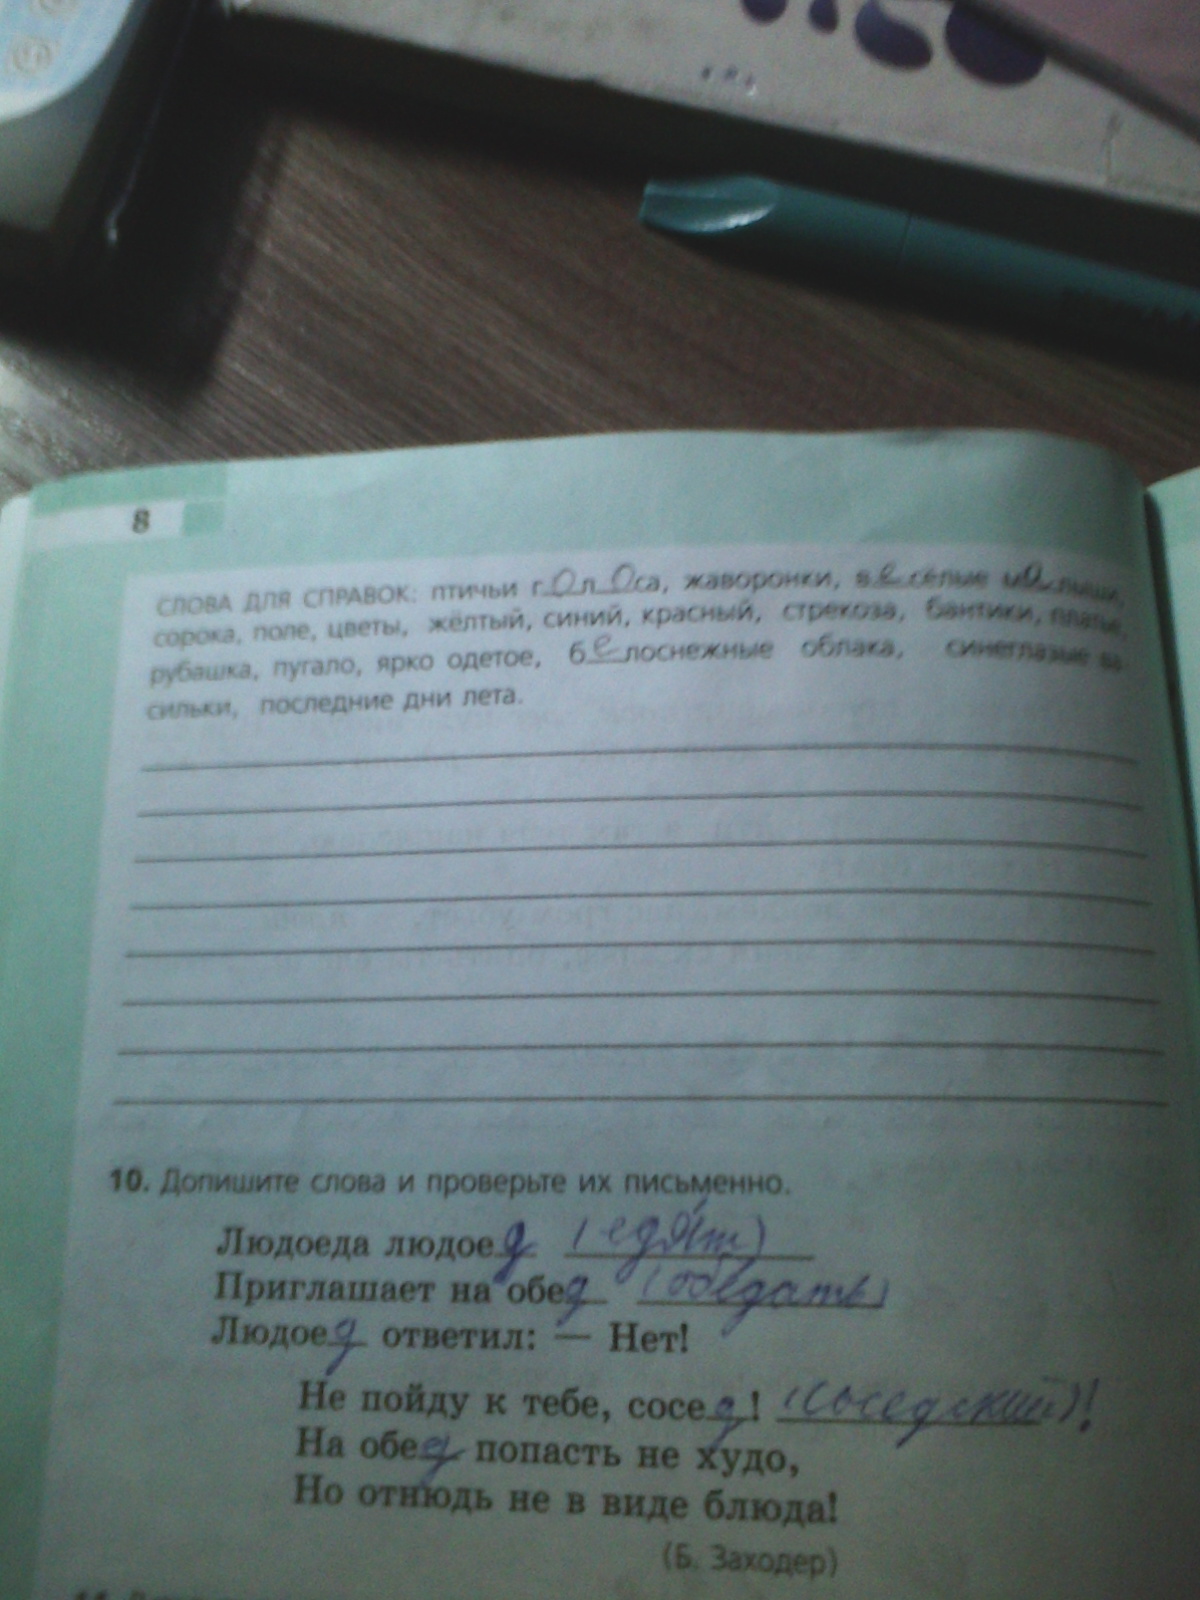 8
СЛОВА ДЛЯ СПРАВОК: птичьи голоса, жаворонки, весёлые малыши,
сорока, поле, цветы, жёлтый, синий, красный, стрекоза, бантики, платье,
рубашка, пугало, ярко одетое, белоснежные облака, синеглазые ва
сильки, последние дни лета.
10. Допишите слова и проверьте их письменно.
Людоеда людоед (едят)
Приглашает на обед (обедать)
Людоед ответил: — Нет!
Не пойду к тебе, сосед! (соседский)!
На обед попасть не худо,
Но отнюдь не в виде блюда!
(Б. Заходер)